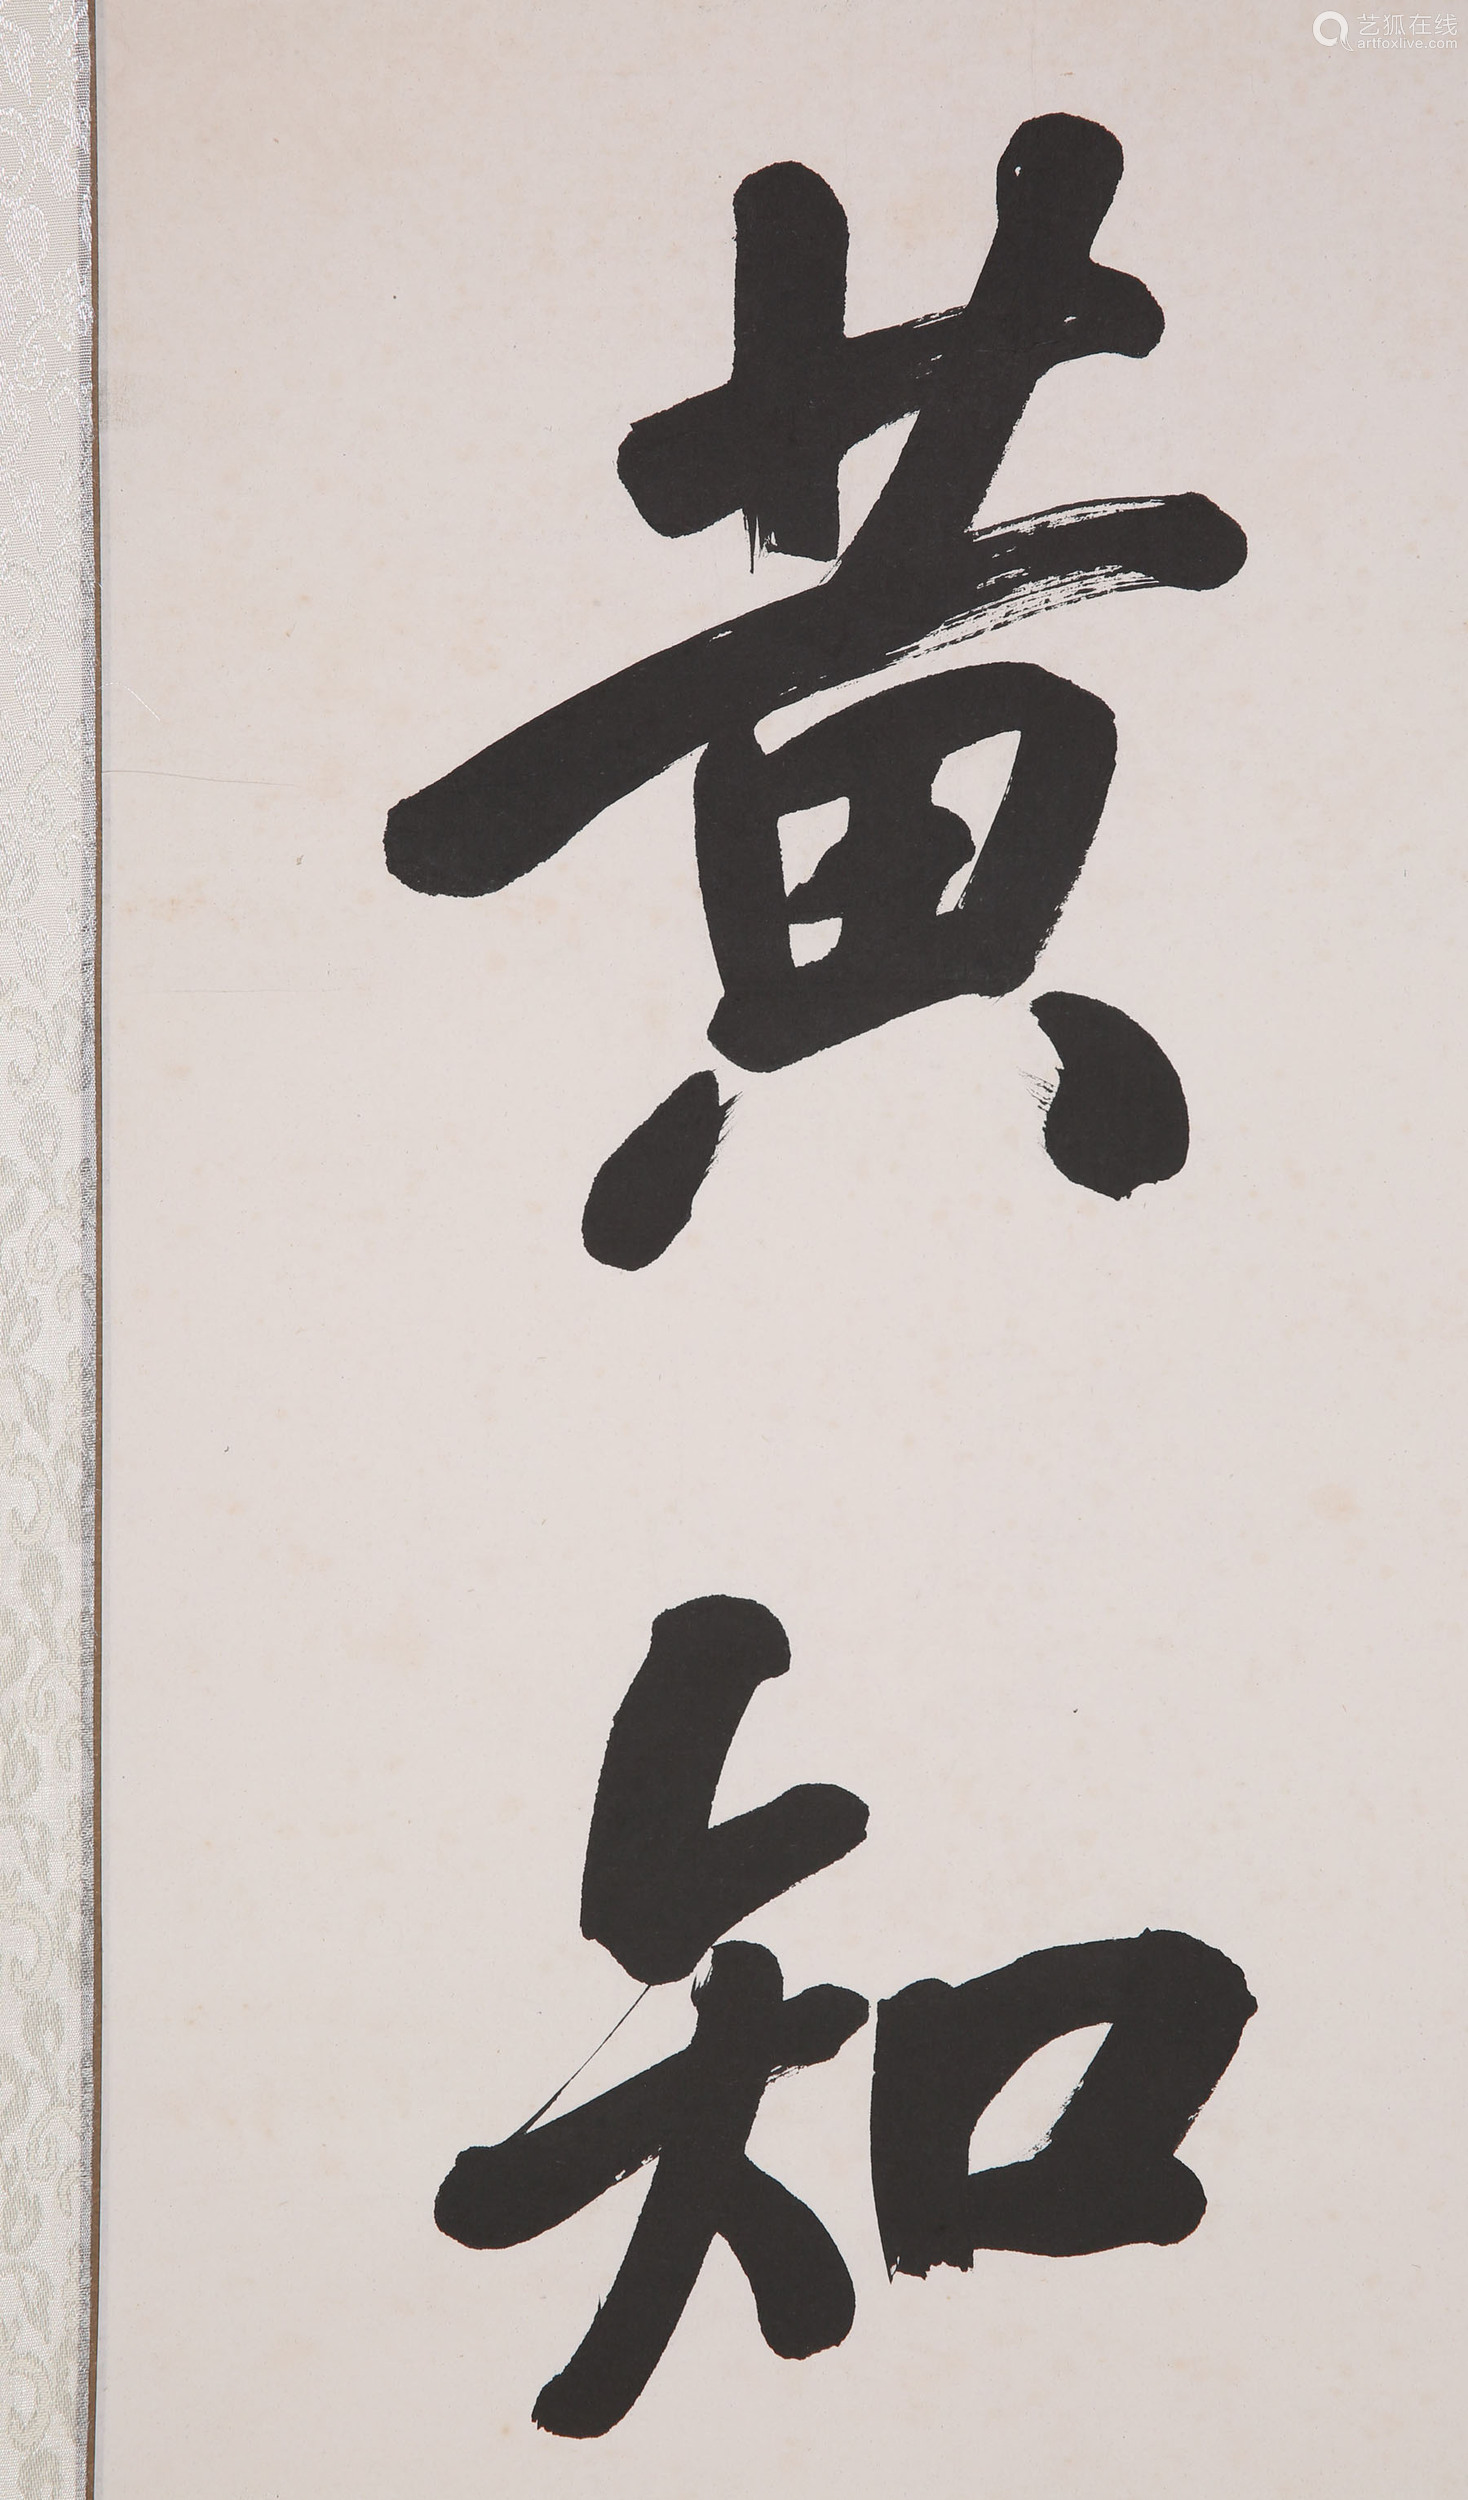 艺狐在线
artfoxlive.com
黄
知